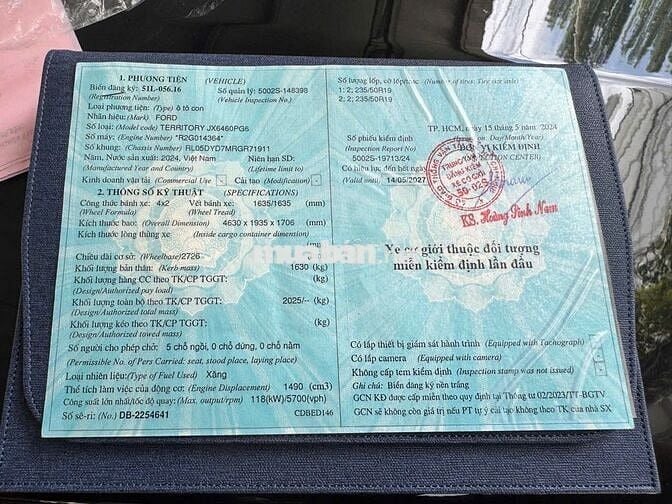 1. PHƯƠNG TIỆN (VEHICLE)
Biển đăng ký: 51L-056.16 Số quản lý: 5002S-148398
(Registration Number) (Vehicle Inspection No.)
Loại phương tiện: (Type) ô tô con
Nhãn hiệu: (Mark) FORD
Số loại: (Model code) TERRITORY JX6460PG6
Số máy: (Engine Number) *R2G014364*
Số khung: (Chassis Number) RL05DYD7MRGR71911
Năm, Nước sản xuất: 2024, Việt Nam Niên hạn SD:
(Manufactured Year and Country) (Lifetime limit to)
Kinh doanh vận tải (Commercial Use) - Cải tạo (Modification) -
2. THÔNG SỐ KỸ THUẬT (SPECIFICATIONS)
Công thức bánh xe: 4x2 Vết bánh xe: 1635/1635 (mm)
(Wheel Formula) (Wheel Tread)
Kích thước bao: (Overall Dimension) 4630 x 1935 x 1706 (mm)
Kích thước lòng thùng xe: (Inside cargo container dimension)
(mm)
Chiều dài cơ sở: (Wheelbase) 2726
Khối lượng bản thân: (Kerb mass) 1630 (kg)
Khối lượng hàng CC theo TK/CP TGGT: (kg)
(Design/Authorized pay load)
Khối lượng toàn bộ theo TK/CP TGGT: 2025/-- (kg)
(Design/Authorized total mass)
Khối lượng kéo theo TK/CP TGGT: (kg)
(Design/Authorized towed mass)
Số người cho phép chở: 5 chỗ ngồi, 0 chỗ đứng, 0 chỗ nằm
(Permissible No. of Pers Carried: seat, stood place, laying place)
Loại nhiên liệu: (Type of Fuel Used) Xăng
Thể tích làm việc của động cơ: (Engine Displacement) 1490 (cm3)
Công suất lớn nhất/tốc độ quay: (Max. output/rpm) 118(kW)/5700(vph)
Số sê-ri: (No.) DB-2254641 CDBED146
Số lượng lốp, cỡ lốp/trục: (Number of tires; Tire size/axle)
1: 2; 235/50R19
2: 2; 235/50R19
TP. HCM, ngày 15 tháng 5 năm 2024
Số phiếu kiểm định (Day/Month/Year)
(Inspection Report No) VỊ KIỂM ĐỊNH
5002S-19713/24 CENTER)
Có hiệu lực đến hết ngày
(Valid until) 14/05/2027
TRUNG TÂM
ĐĂNG KIỂM
XE CƠ GIỚI
50-02S
KS. Hoàng Đình Nam
muaban
Xe cơ giới thuộc đối tượng
miễn kiểm định lần đầu
Có lắp thiết bị giám sát hành trình (Equipped with Tachograph) -
Có lắp camera (Equipped with camera) -
Không cấp tem kiểm định (Inspection stamp was not issued) -
Ghi chú: Biển đăng ký nền trắng
GCN KĐ được cấp miễn theo quy định tại Thông tư 02/2023/TT-BGTV
GCN sẽ không còn giá trị nếu PT tự ý cải tạo không theo TK của nhà SX